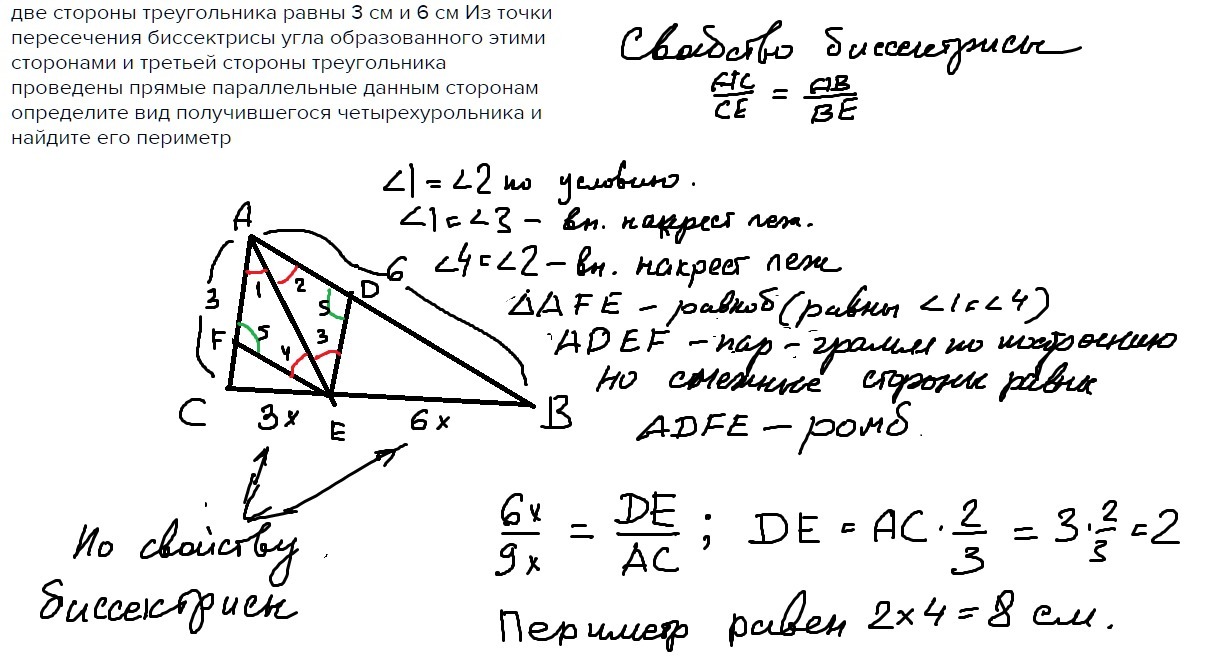 две стороны треугольника равны 3 см и 6 см Из точки
пересечения биссектрисы угла образованного этими
сторонами и третьей стороны треугольника
проведены прямые параллельные данным сторонам
определите вид получившегося четырехурольника и
найдите его периметр
Свойство биссектрисы
AC/CE = AB/BE
∠1 = ∠2 по условию.
∠1 = ∠3 – вн. накрест леж.
∠4 = ∠2 – вн. накрест леж
ΔAFE – равноб (равны ∠1 = ∠4)
ADEF – пар-грамм по построению
но смежные стороны равны
ADFE – ромб.
A
3
1
2
6
D
5
F
5
4
3
C
3x
E
6x
B
По свойству
биссектрисы
6x/9x = DE/AC ; DE = AC · 2/3 = 3 · 2/3 = 2
Периметр равен 2×4=8 см.